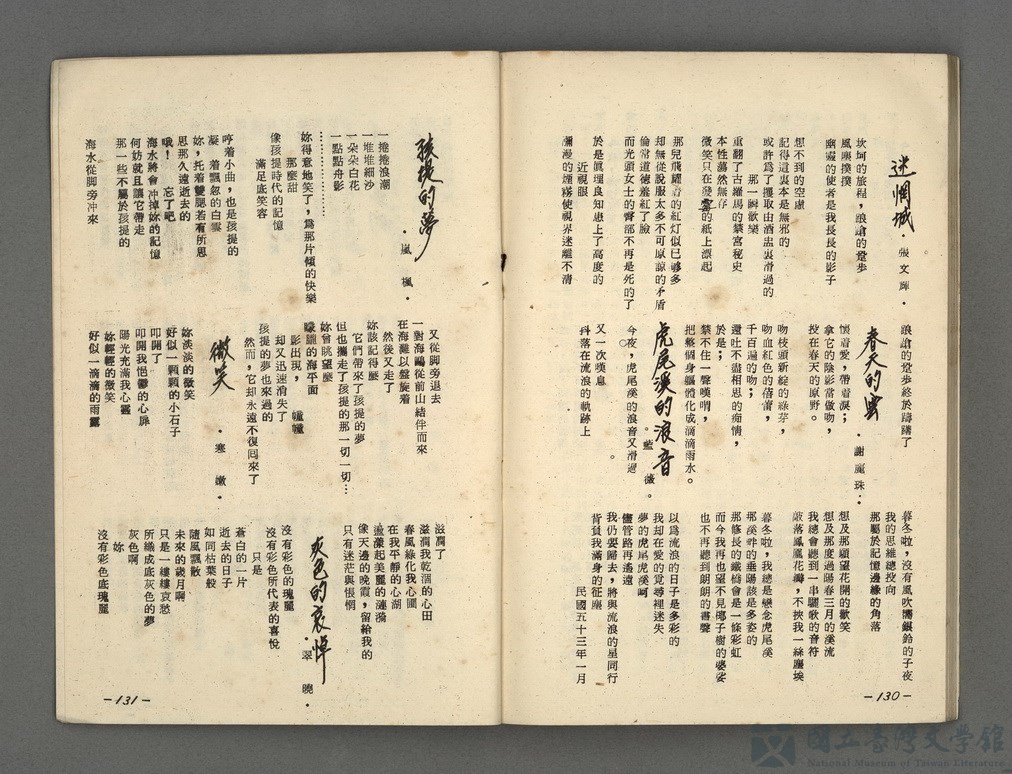 迷惘城
·張文輝·
坎坷的旅程,踉蹌的跫步
風塵撲撲
幽靈的使者是我長長的影子
想不到的空虛
記得這裏本是無邪的
或許爲了攫取由酒盅裏滑過的
那一瞬歡樂
重翻了古羅馬的禁宮秘史
本性蕩然無存
微笑只在發霉的紙上漂起
那兒飛躍着的紅灯似已够多
却無從說服太多不可原諒的矛盾
倫常道德羞紅了臉
而光頭女士的臀部不再是死的了
於是眞理良知患上了高度的
近視眼
瀰漫的煙霧使視界迷離不清
踉蹌的跫步終於躊躇了
春天的雲
·謝麗珠·
懷着愛,帶着淚;
拿它的陰影當做吻,
投在春天的原野。
吻枝頭新綻的綠芽,
吻血紅色的蓓蕾,
千百遍的吻;
還吐不盡相思的痴情,
於是;
禁不住一聲嘆喟,
把整個身軀體化成滴滴雨水。
虎尾溪的浪音
。藍薇。
今夜,虎尾溪的浪音又滑過
又一次嘆息
抖落在流浪的軌跡上
暮冬啦,沒有風吹懦銀鈴的子夜
我的思維總投向
那屬於記憶邊緣的角落
想及那顧望花開的歡笑
想及那度過陽春三月的溪流
我總會聽到一串驪歌的音符
敲落鳳凰花瓣,不挾我一絲塵埃
暮冬啦,我總是戀念虎尾溪
那溪畔的垂陽該是多姿的
那修長的鐵橋會是一條彩虹
而今我再也望不見椰子樹的婆娑
也不再聽到朗朗的書聲
以爲流浪的日子是多彩的
我却在愛的覓尋裡迷失
夢的虎尾虎尾溪呵
儘管路再遙遠
我仍要歸去,將與流浪的星同行
背負我滿身的征塵
民國五十三年一月
-130-
孩提的夢
·嵐楓·
一捲捲浪潮
一堆堆細沙
一朵朵白花
一點點舟影
……………
妳得意地笑了,爲那片傾的快樂
那麼甜
像孩提時代的記憶
滿足底笑容
哼着小曲,也是孩提的
凝着飄忽的白雲
妳,托着雙腮若有所思
思那久遠逝去的
哦! 忘了吧
海水將會冲掉妳的記憶
何妨就且讓它帶走
那一些不屬於孩提的
海水從脚旁冲來
又從脚旁退去
一對海鷗從前山結伴而來
在海灘以盤旋着
然後又走了
妳該記得麼
它們帶來了孩提的夢
但也攜走了孩提的那一切一切…
妳曾眺望麼
矇矓的海平面 幢幢
影出現,
却又迅速消失了
孩提的夢也來過的
然而,它却永遠不復囘來了
微笑
·寒㵟·
妳淡淡的微笑
好似一顆顆的小石子
叩開了
叩開我悒鬱的心扉
陽光充滿我心靈
妳輕輕的微笑
好似一滴滴的雨露
滋潤了
滋潤我乾涸的心田
春風綠化我心圃
在我平靜的心湖
盪漾起美麗的漣漪
像天邊的晚霞,留給我的
只有迷茫與悵惘
灰色的哀悼
·翠曉·
沒有彩色的瑰麗
沒有彩色所代表的喜悅
只是
蒼白的一片
逝去的日子
如同枯葉般
隨風飄散
未來的歲月啊
只是一縷縷哀愁
所織成底灰色的夢
灰色啊
妳
沒有彩色底瑰麗
-131-
國立臺灣文学館
National Museum of Taiwan Literature